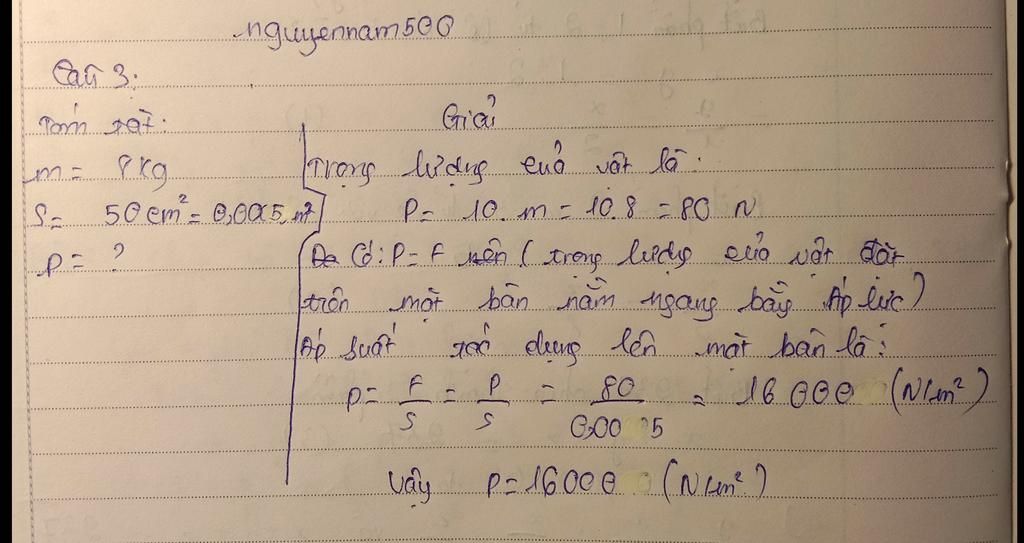 nguyennam500
Câu 3:
Tóm tắt:
m = 8kg
S = 50cm² = 0,005 m²
p = ?
Giải
Trọng lượng của vật là:
P = 10.m = 10.8 = 80 N
Có: P = F nên ( trọng lượng của vật đặt
trên mặt bàn nằm ngang bằng Áp lực)
Áp suất tác dụng lên mặt bàn là:
p = F/S = P/S = 80/0,005 = 16 000 (N/m²)
Vậy p = 16000 (N/m²)